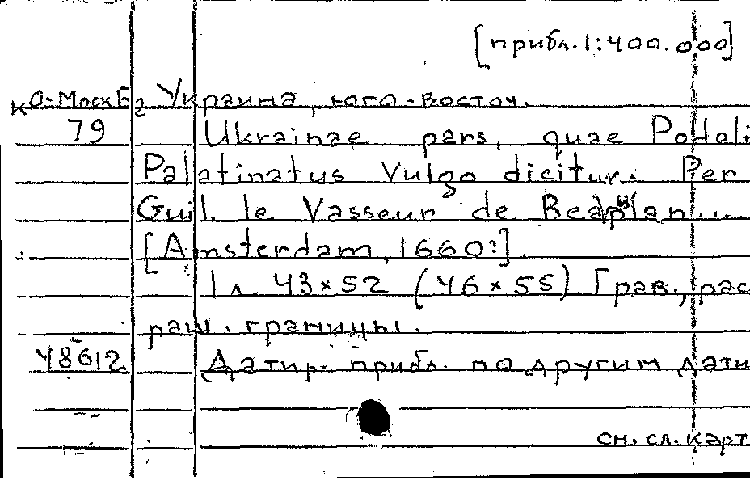 [прибл. 1:400.000]
Ко-Моск Б2 Украина, юго-восточ.
79 Ukrainae pars, quae Podoli
Palatinatus Vulgo dicitur. Per
Guil. le Vasseur de Beauplan...
[Amsterdam, 1660?]
1 л 43×52 (46×55) Грав., рас
раш. границы.
48612 Датир. прибл. по другим дати
см. сл. карт